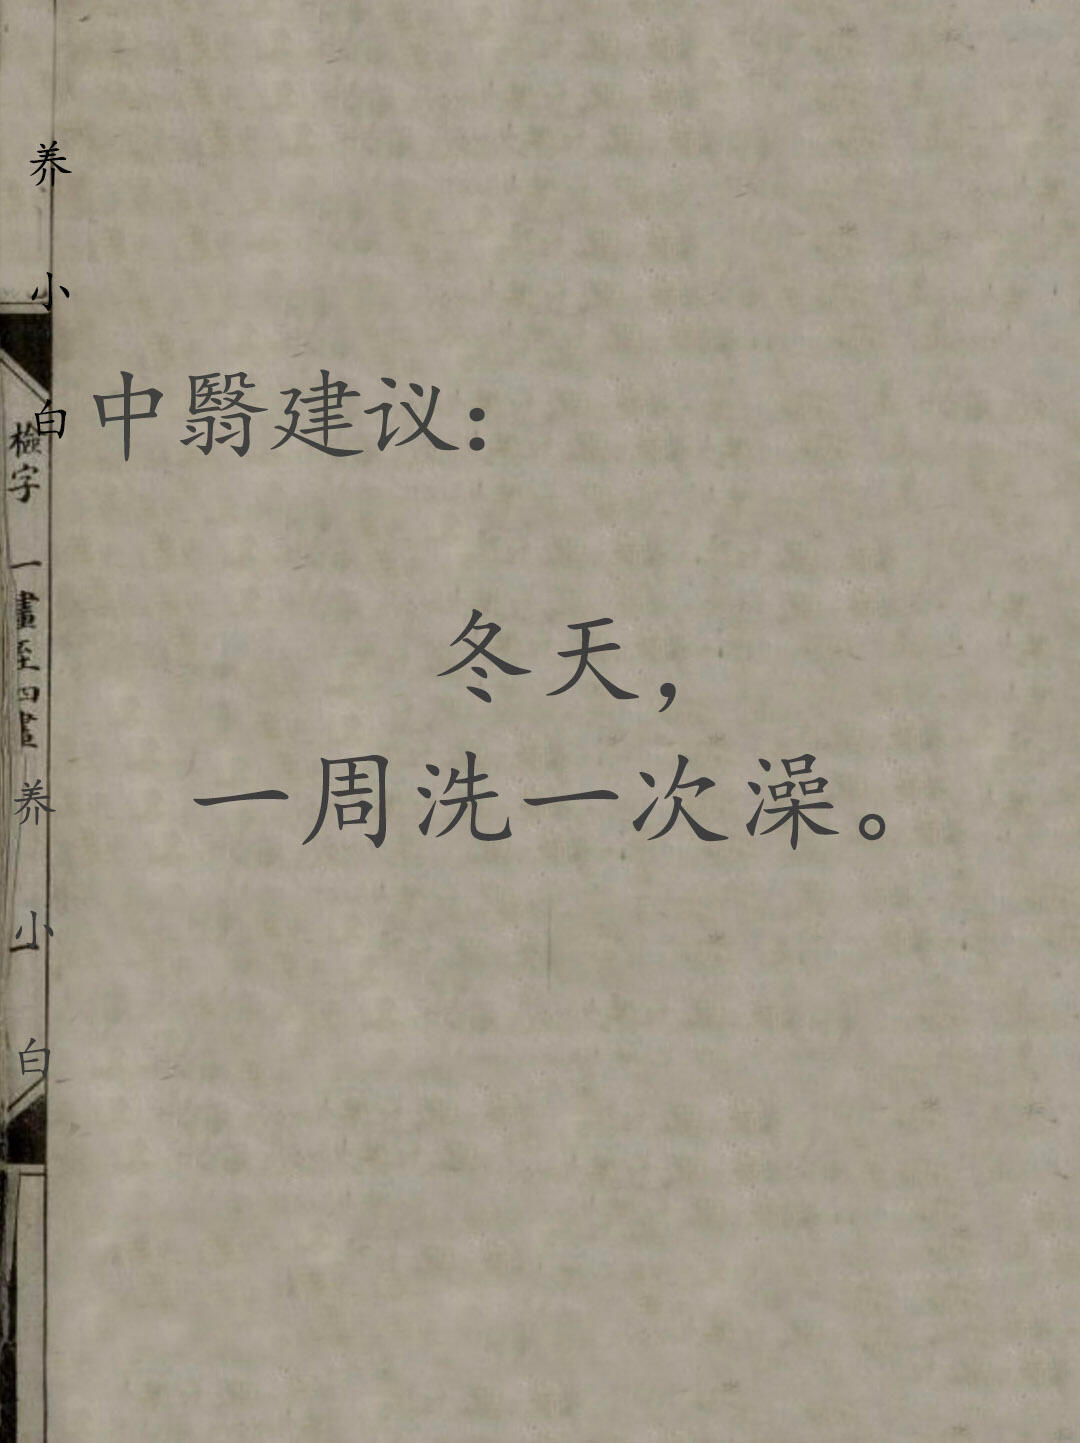 养小白
中翳建议：
冬天，
一周洗一次澡。
檢字 一畫至四畫
养小白